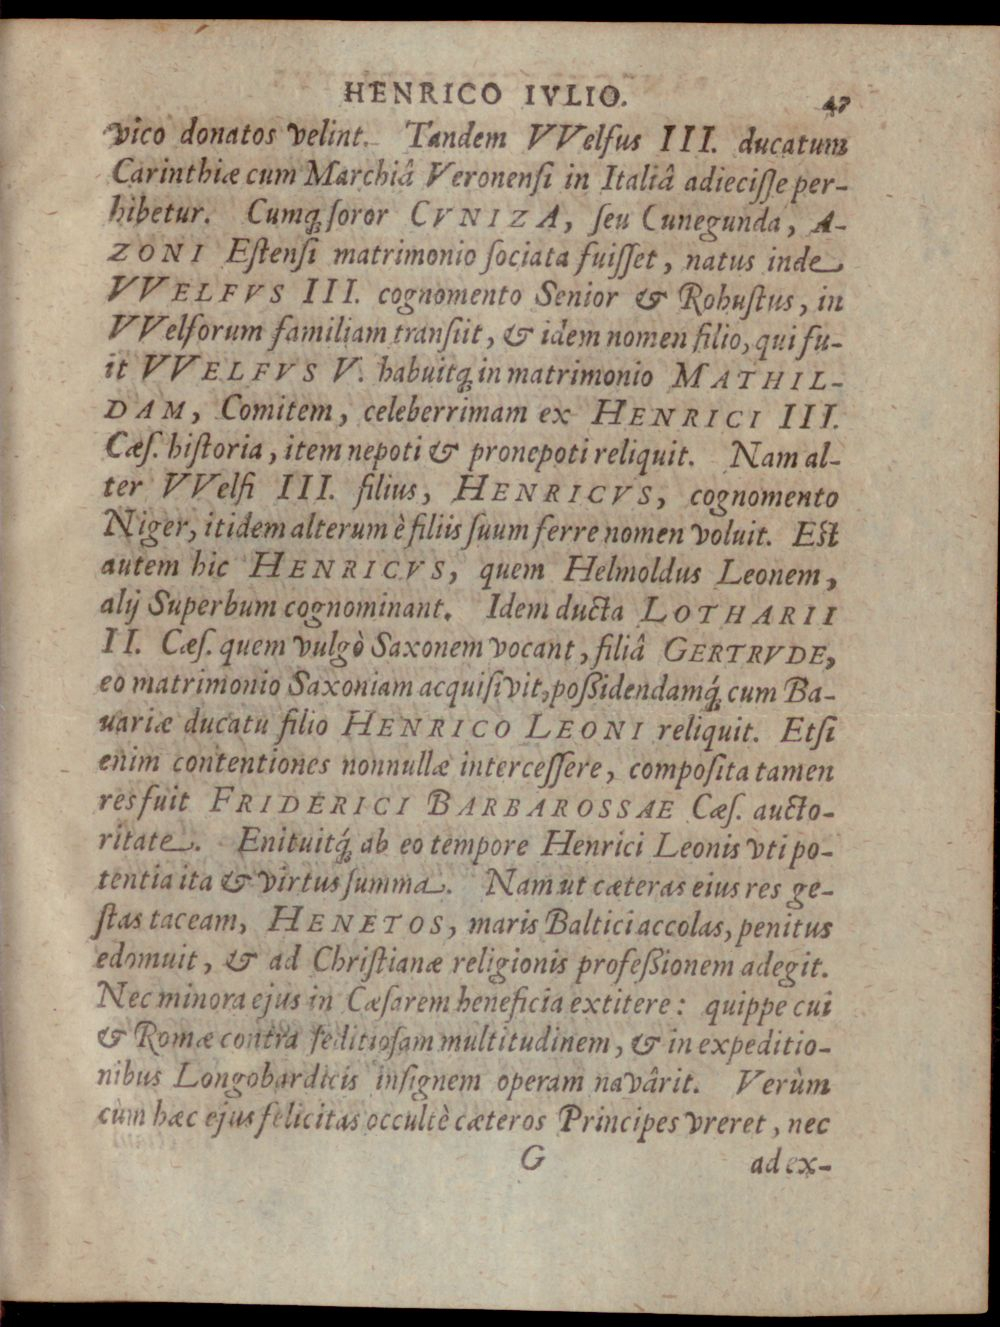 HENRICO IVLIO. 47
vico donatos velint. Tandem VVelfus III. ducatum
Carinthiæ cum Marchiâ Veronensi in Italiâ adiecisse per-
hibetur. Cumq́; soror CVNIZA, seu Cunegunda, A-
ZONI Estensi matrimonio sociata fuisset, natus inde
VVELFVS III. cognomento Senior & Robustus, in
VVelforum familiam transiit, & idem nomen filio, qui fu-
it VVELFVS V. habuitq́; in matrimonio MATHIL-
DAM, Comitem, celeberrimam ex HENRICI III.
Cæs. historia, item nepoti & pronepoti reliquit. Nam al-
ter VVelfi III. filius, HENRICVS, cognomento
Niger, itidem alterum è filiis suum ferre nomen voluit. Est
autem hic HENRICVS, quem Helmoldus Leonem,
alij Superbum cognominant. Idem ducta LOTHARII
II. Cæs. quem vulgò Saxonem vocant, filiâ GERTRVDE,
eo matrimonio Saxoniam acquisivit, possidendamq́; cum Ba-
uariæ ducatu filio HENRICO LEONI reliquit. Etsi
enim contentiones nonnullæ intercessere, composita tamen
res fuit FRIDERICI BARBAROSSAE Cæs. aucto-
ritate. Enituitq́; ab eo tempore Henrici Leonis vti po-
tentia ita & virtus summa. Nam ut cæteras eius res ge-
stas taceam, HENETOS, maris Baltici accolas, penitus
edomuit, & ad Christianæ religionis professionem adegit.
Nec minora ejus in Cæsarem beneficia extitere: quippe cui
& Romæ contra seditiosam multitudinem, & in expeditio-
nibus Longobardicis insignem operam navârit. Verùm
cùm hæc ejus felicitas occultè cæteros Principes vreret, nec
G ad ex-